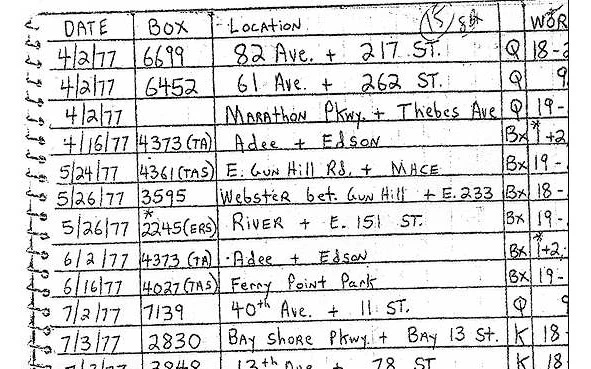 DATE BOX LOCATION 15/ WOR
4/2/77 6699 82 Ave. + 217 ST. Q 18-2
4/2/77 6452 61 Ave. + 262 ST. Q 9
4/2/77 MARAthon Pkwy. + Thebes Ave Q 19-
4/16/77 4373 (TA) Adee + EdSON Bx *1+2
5/24/77 4361 (TAS) E. GUN Hill Rd. + MACE Bx 19-
5/26/77 3595 Webster bet. GUN Hill + E. 233 Bx 18-
5/26/77 *2245 (ERS) RIVER + E. 151 ST. Bx 19-
6/2/77 4373 (TA) Adee + Edson Bx *1+2,
6/16/77 4027 (TAS) Ferry Point Park Bx 19-
7/2/77 7139 40th Ave. + 11 ST. Q 9
7/3/77 2830 BAY Shore Pkwy. + BAY 13 St. K 18-
13th Ave. + 78 ST K 18